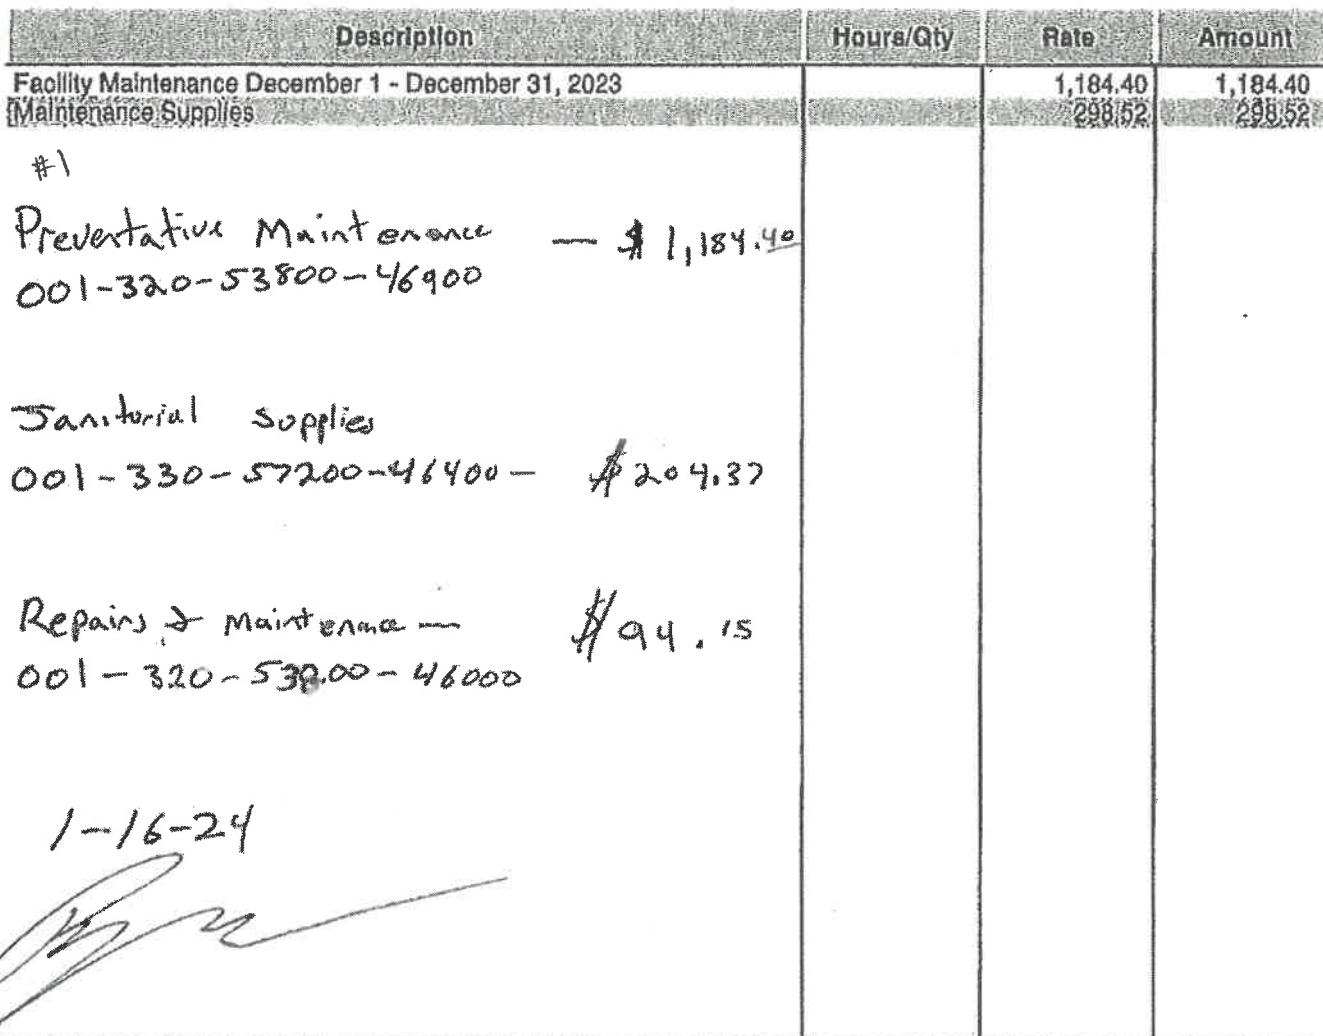 Description Hours/Qty Rate Amount
Facility Maintenance December 1 - December 31, 2023 1,184.40 1,184.40
Maintenance Supplies 298.52 298.52
#1
Preventative Maintenance — $ 1,184.40
001-320-53800-46900
Janitorial Supplies
001-330-57200-46400 - $204.37
Repairs & Maintenance — $94.15
001-320-53800-46000
1-16-24